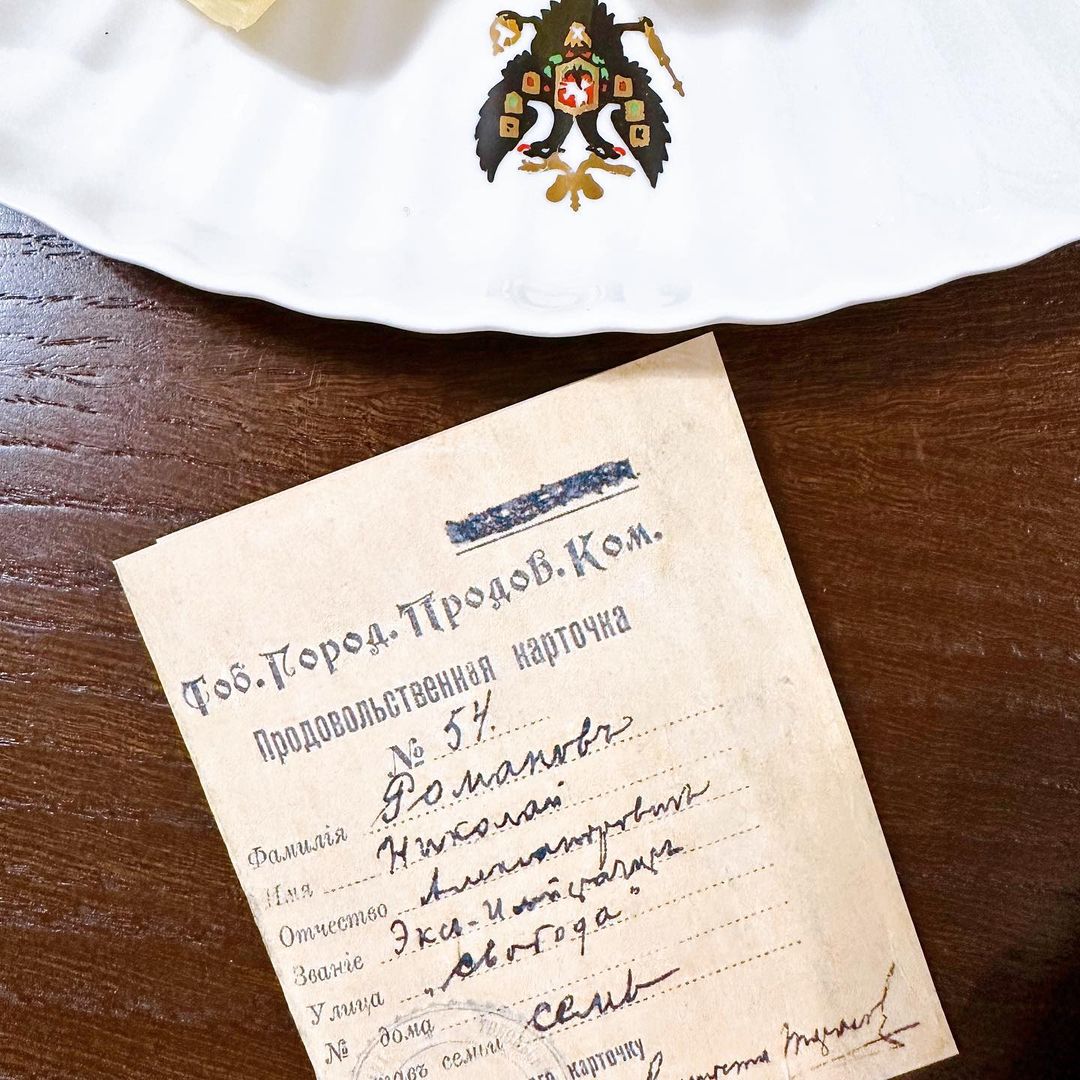 Тоб. Город. Продов. Ком.
Продовольственная карточка
№ 54.
Фамилія Романовъ
Имя Николай
Отчество Александровичъ
Званіе Экс-Императоръ
Улица „Свобода"
№ дома
составъ семьи семь
карточку